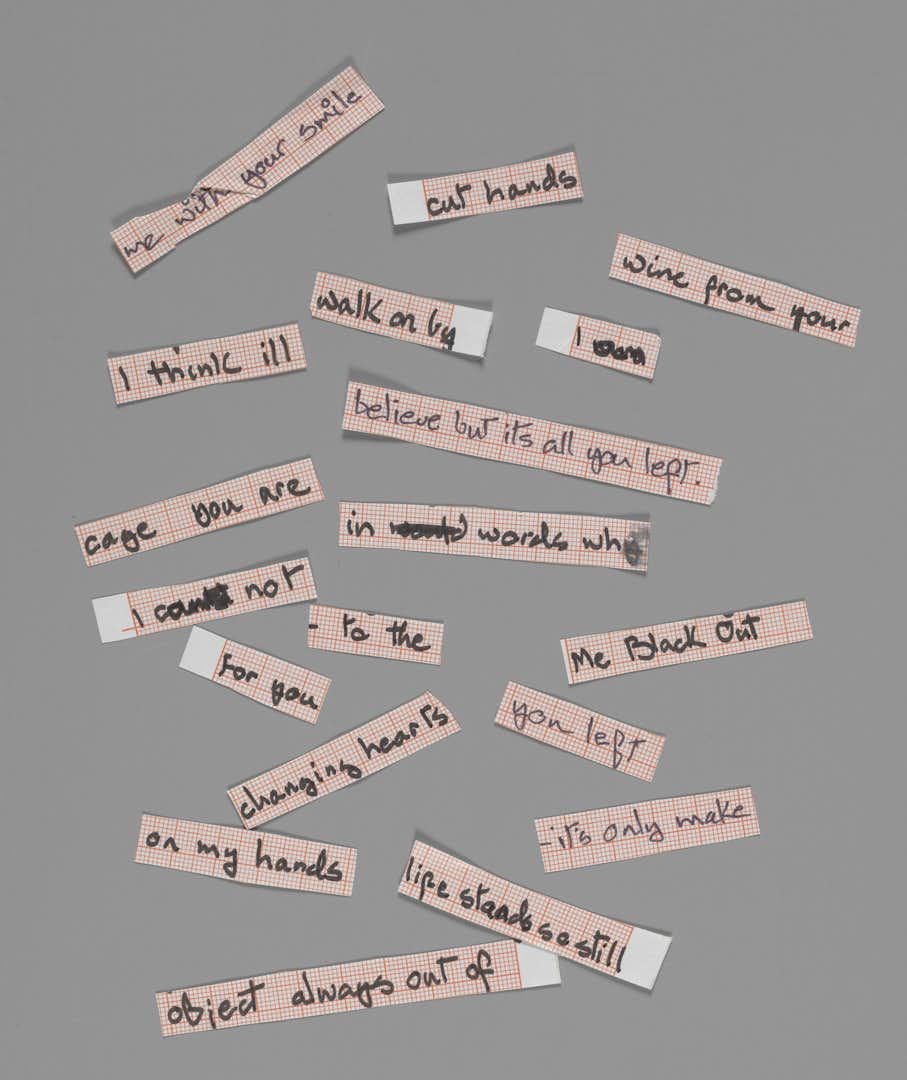 me with your smile
cut hands
wine from your
walk on by
I
I think ill
believe but its all you left.
cage you are
in words why
I not
- to the
Me Black Out
for you
you left
changing hearts
- it's only make
on my hands
life stands so still
object always out of